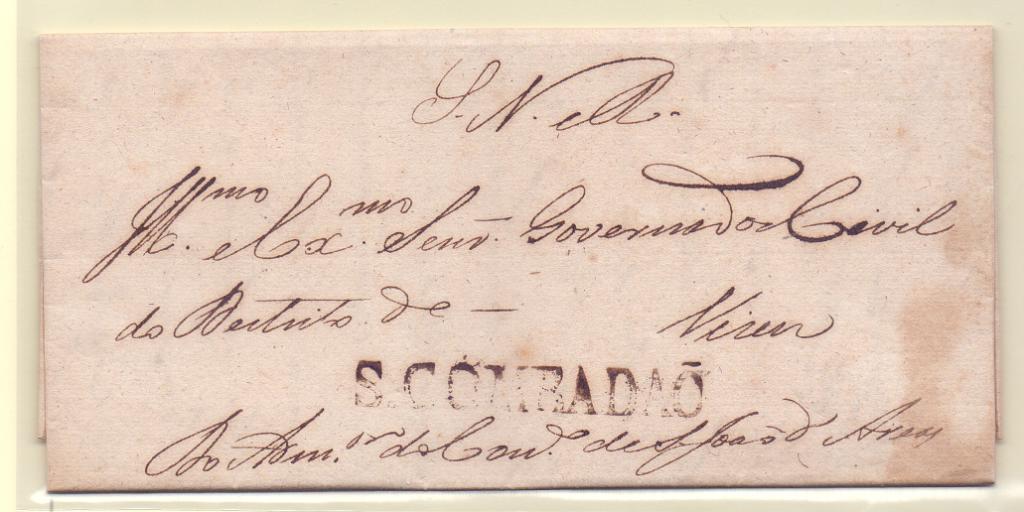 S. N. e R.
Illmo. e Exmo. Senr. Governador Civil
do Destrito de — Viseu
S. COMBADAÕ
Do Admor. do Conc. de S. João d' Areas